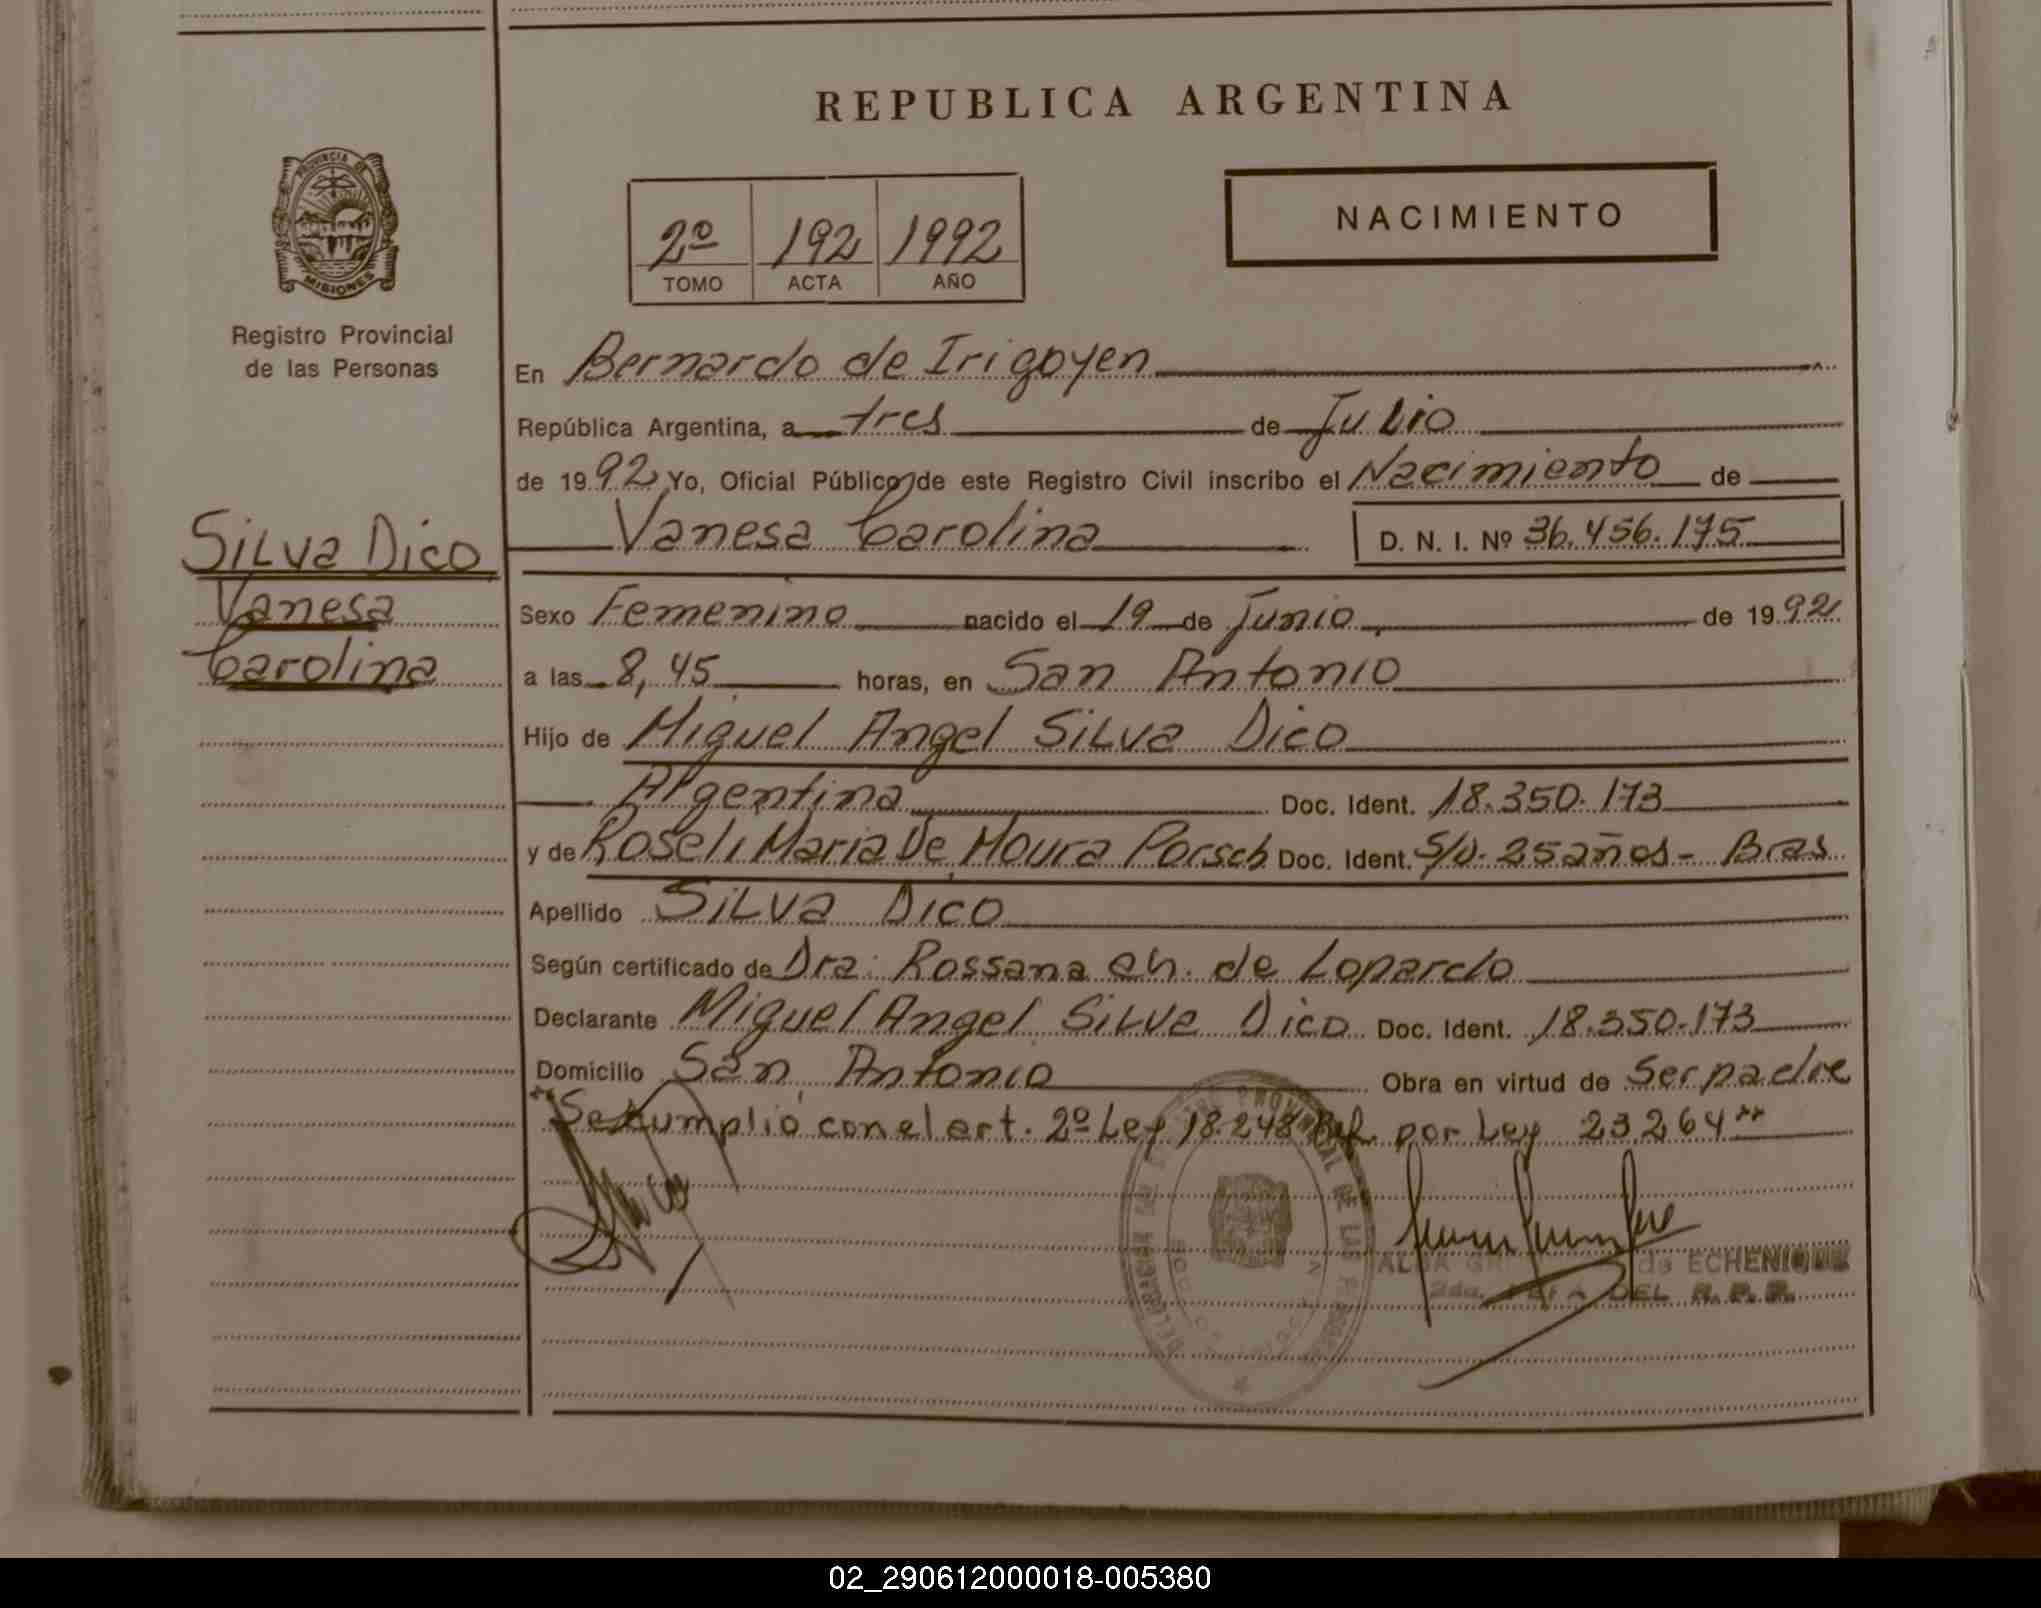 REPUBLICA ARGENTINA
PROVINCIA DE
MISIONES
Registro Provincial
de las Personas
2º 192 1992
TOMO ACTA AÑO
NACIMIENTO
En Bernardo de Irigoyen
República Argentina, a tres de Julio
de 1992 Yo, Oficial Público de este Registro Civil inscribo el Nacimiento de
Vanesa Carolina D. N. I. Nº 36.456.175
Silva Dico
Vanesa
Carolina
Sexo Femenino nacido el 19 de Junio de 1992
a las 8,45 horas, en San Antonio
Hijo de Miguel Angel Silva Dico
Argentina Doc. Ident. 18.350.173
y de Roseli Maria De Moura Porsch Doc. Ident. S/D. 25 años - Bras
Apellido Silva Dico
Según certificado de Dra: Rossana de Lopardo
Declarante Miguel Angel Silva Dico Doc. Ident. 18.350.173
Domicilio San Antonio Obra en virtud de Ser padre
"Se cumplió con el art. 2º Ley 18248 por Ley 23264"
ALBA de ECHENIQUE
DEL R. P. P.
02_290612000018-005380